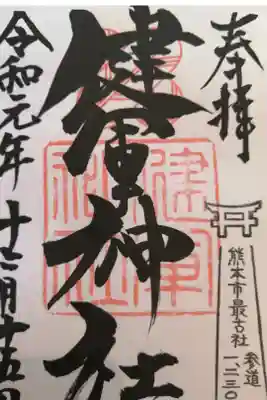 奉拝
参道一、二三〇
熊本市最古社
健軍神社
健軍
神社
令和元年十二月十五日